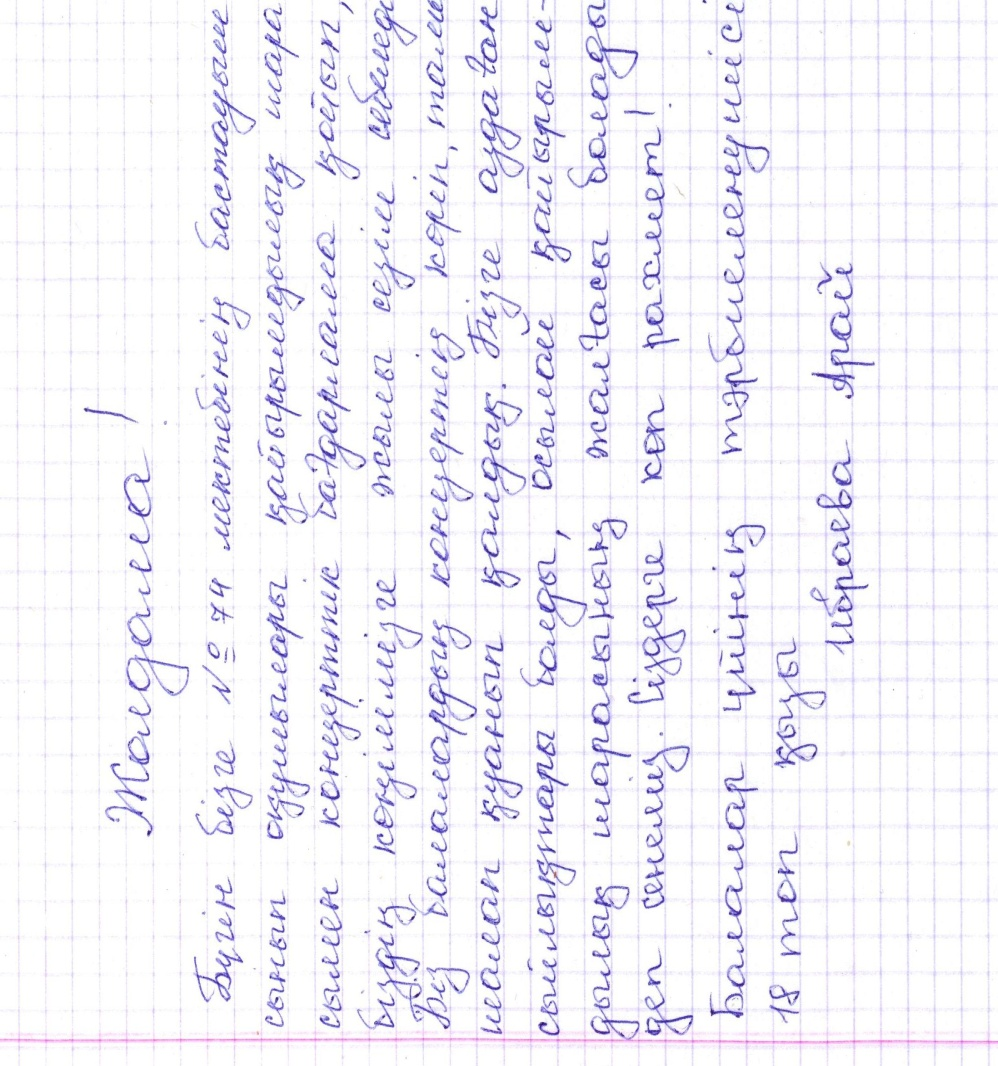 Жолдама!
Бүгін бізге №74 мектебінің бастауыш
сынып оқушылары қайырымдылық шара
сымен концерттік бағдарлама қойып,
біздің көңілімізге жылы сезім себеледі
Біз балалардың концертің көріп, тама
шалап қуанып қалдық. Бізге аудаған
сыйлықтары болды, осылай қайырым-
дылық шарасының жалғасы болады
деп сенеміз. Сіздерге көп рахмет!
Балалар үйінің тәрбиеленушісі
18 топ қызы
Ибраева Арай